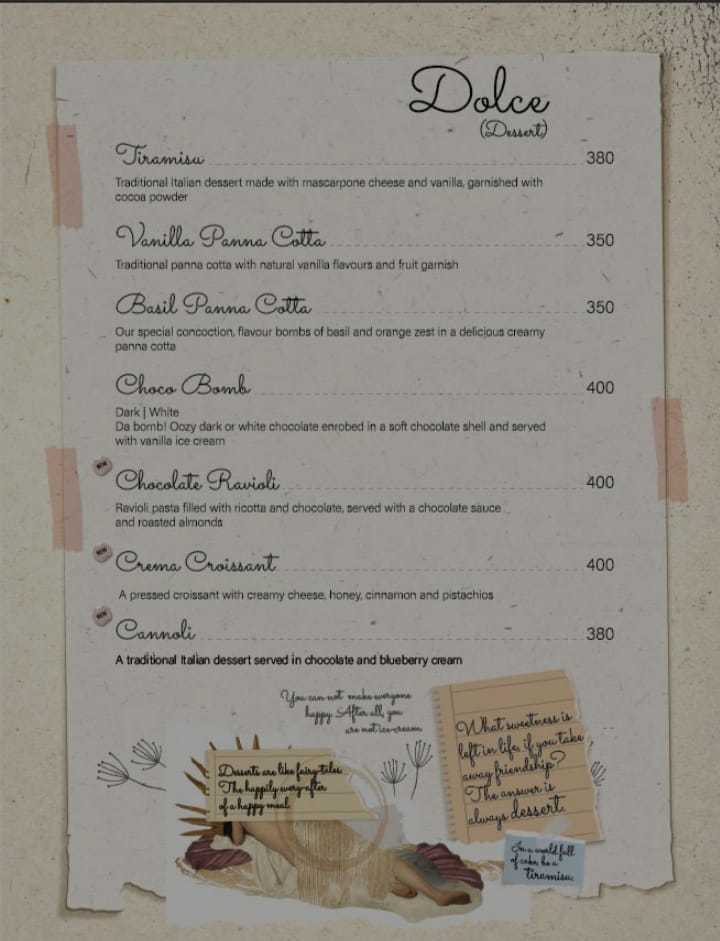 Dolce
(Dessert)
Tiramisu 380
Traditional Italian dessert made with mascarpone cheese and vanilla, garnished with
cocoa powder
Vanilla Panna Cotta 350
Traditional panna cotta with natural vanilla flavours and fruit garnish
Basil Panna Cotta 350
Our special concoction, flavour bombs of basil and orange zest in a delicious creamy
panna cotta
Choco Bomb 400
Dark | White
Da bomb! Oozy dark or white chocolate enrobed in a soft chocolate shell and served
with vanilla ice cream
NEW
Chocolate Ravioli 400
Ravioli pasta filled with ricotta and chocolate, served with a chocolate sauce
and roasted almonds
NEW
Crema Croissant 400
A pressed croissant with creamy cheese, honey, cinnamon and pistachios
NEW
Cannoli 380
A traditional Italian dessert served in chocolate and blueberry cream
You can not make everyone
happy. After all, you
are not ice-cream.
What sweetness is
left in life, if you take
away friendship?
The answer is
always dessert.
Desserts are like fairy-tales.
The happily every-after
of a happy meal.
In a world full
of cake, be a
tiramisu.